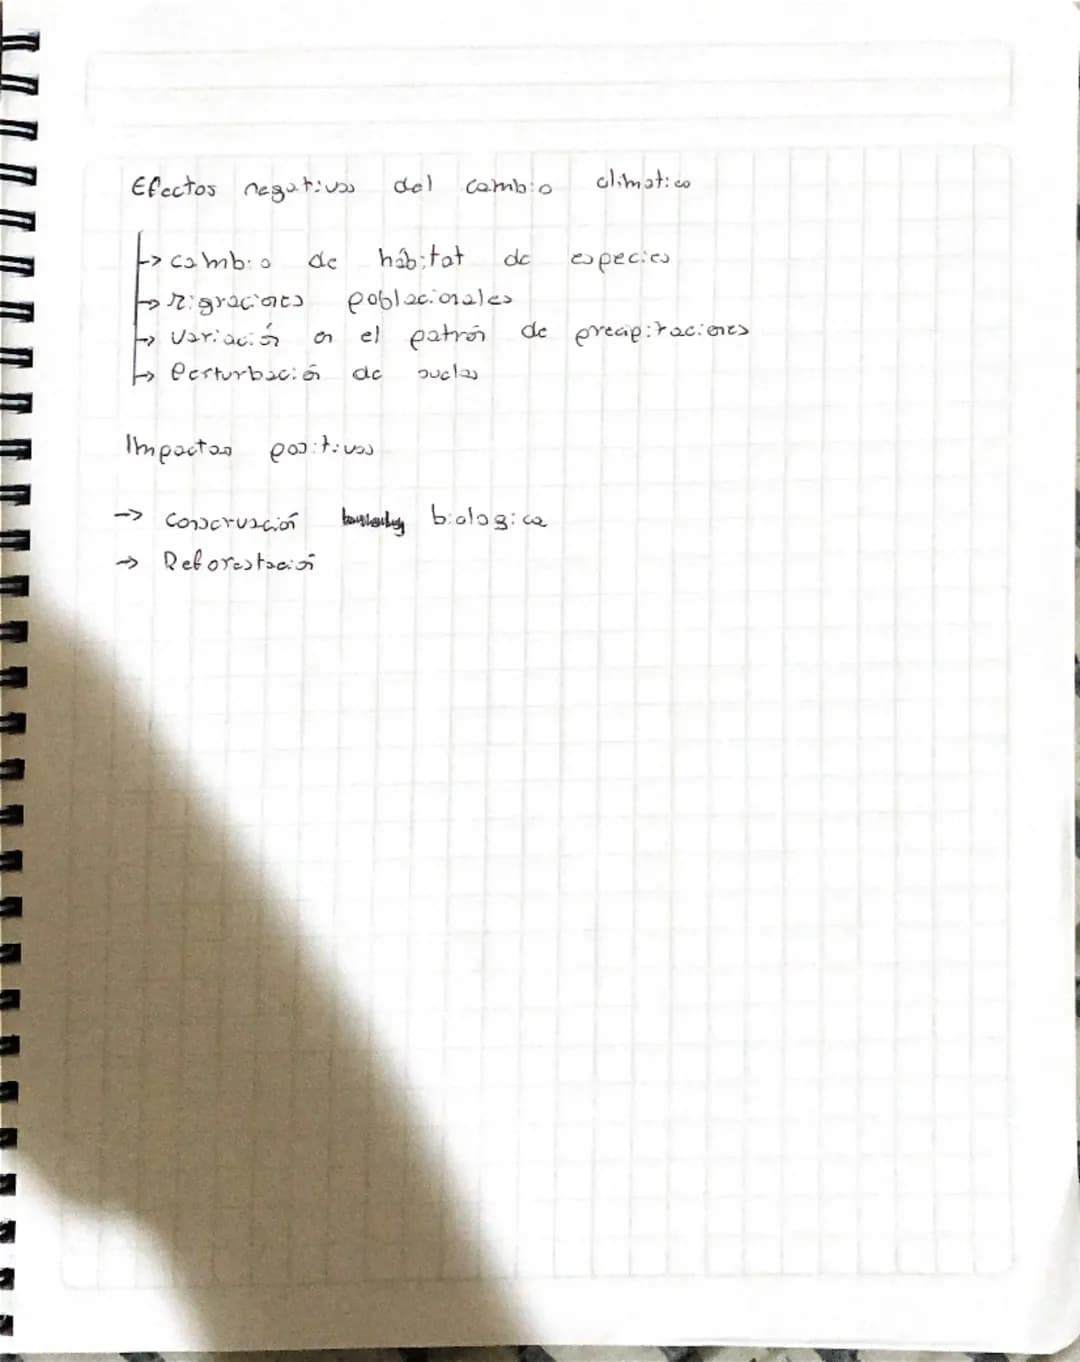 Efectos negativos del cambio climatico
↳ cambio de hábitat de especies
↳ Migraciones poblacionales
↳ Variación en el patrón de precipitaciones
↳ Perturbación de suelos
Impactos positivos
→ Conservación biologica
→ Reforestación